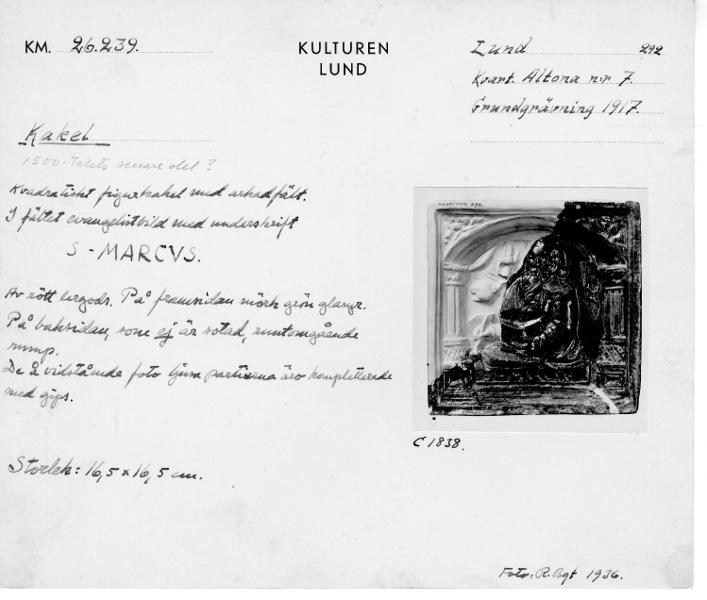 KM. 26.239.
KULTUREN
LUND
Lund 292
Kvart. Altona n:r 7.
Grundgrävning 1917.
Kakel
1500-talets senare del?
Kvadratiskt figurkakel med arkadfält.
I fältet evangelistbild med underskrift
S-MARCVS.
Av rött lergods. På framsidan mörk grön glasyr.
På baksidan, som ej är sotad, runtomgående
rump.
De å vidstående foto ljusa partierna äro kompletterade
med gips.
Storlek: 16,5 x 16,5 cm.
C 1838.
Foto: R. Bgt 1936.